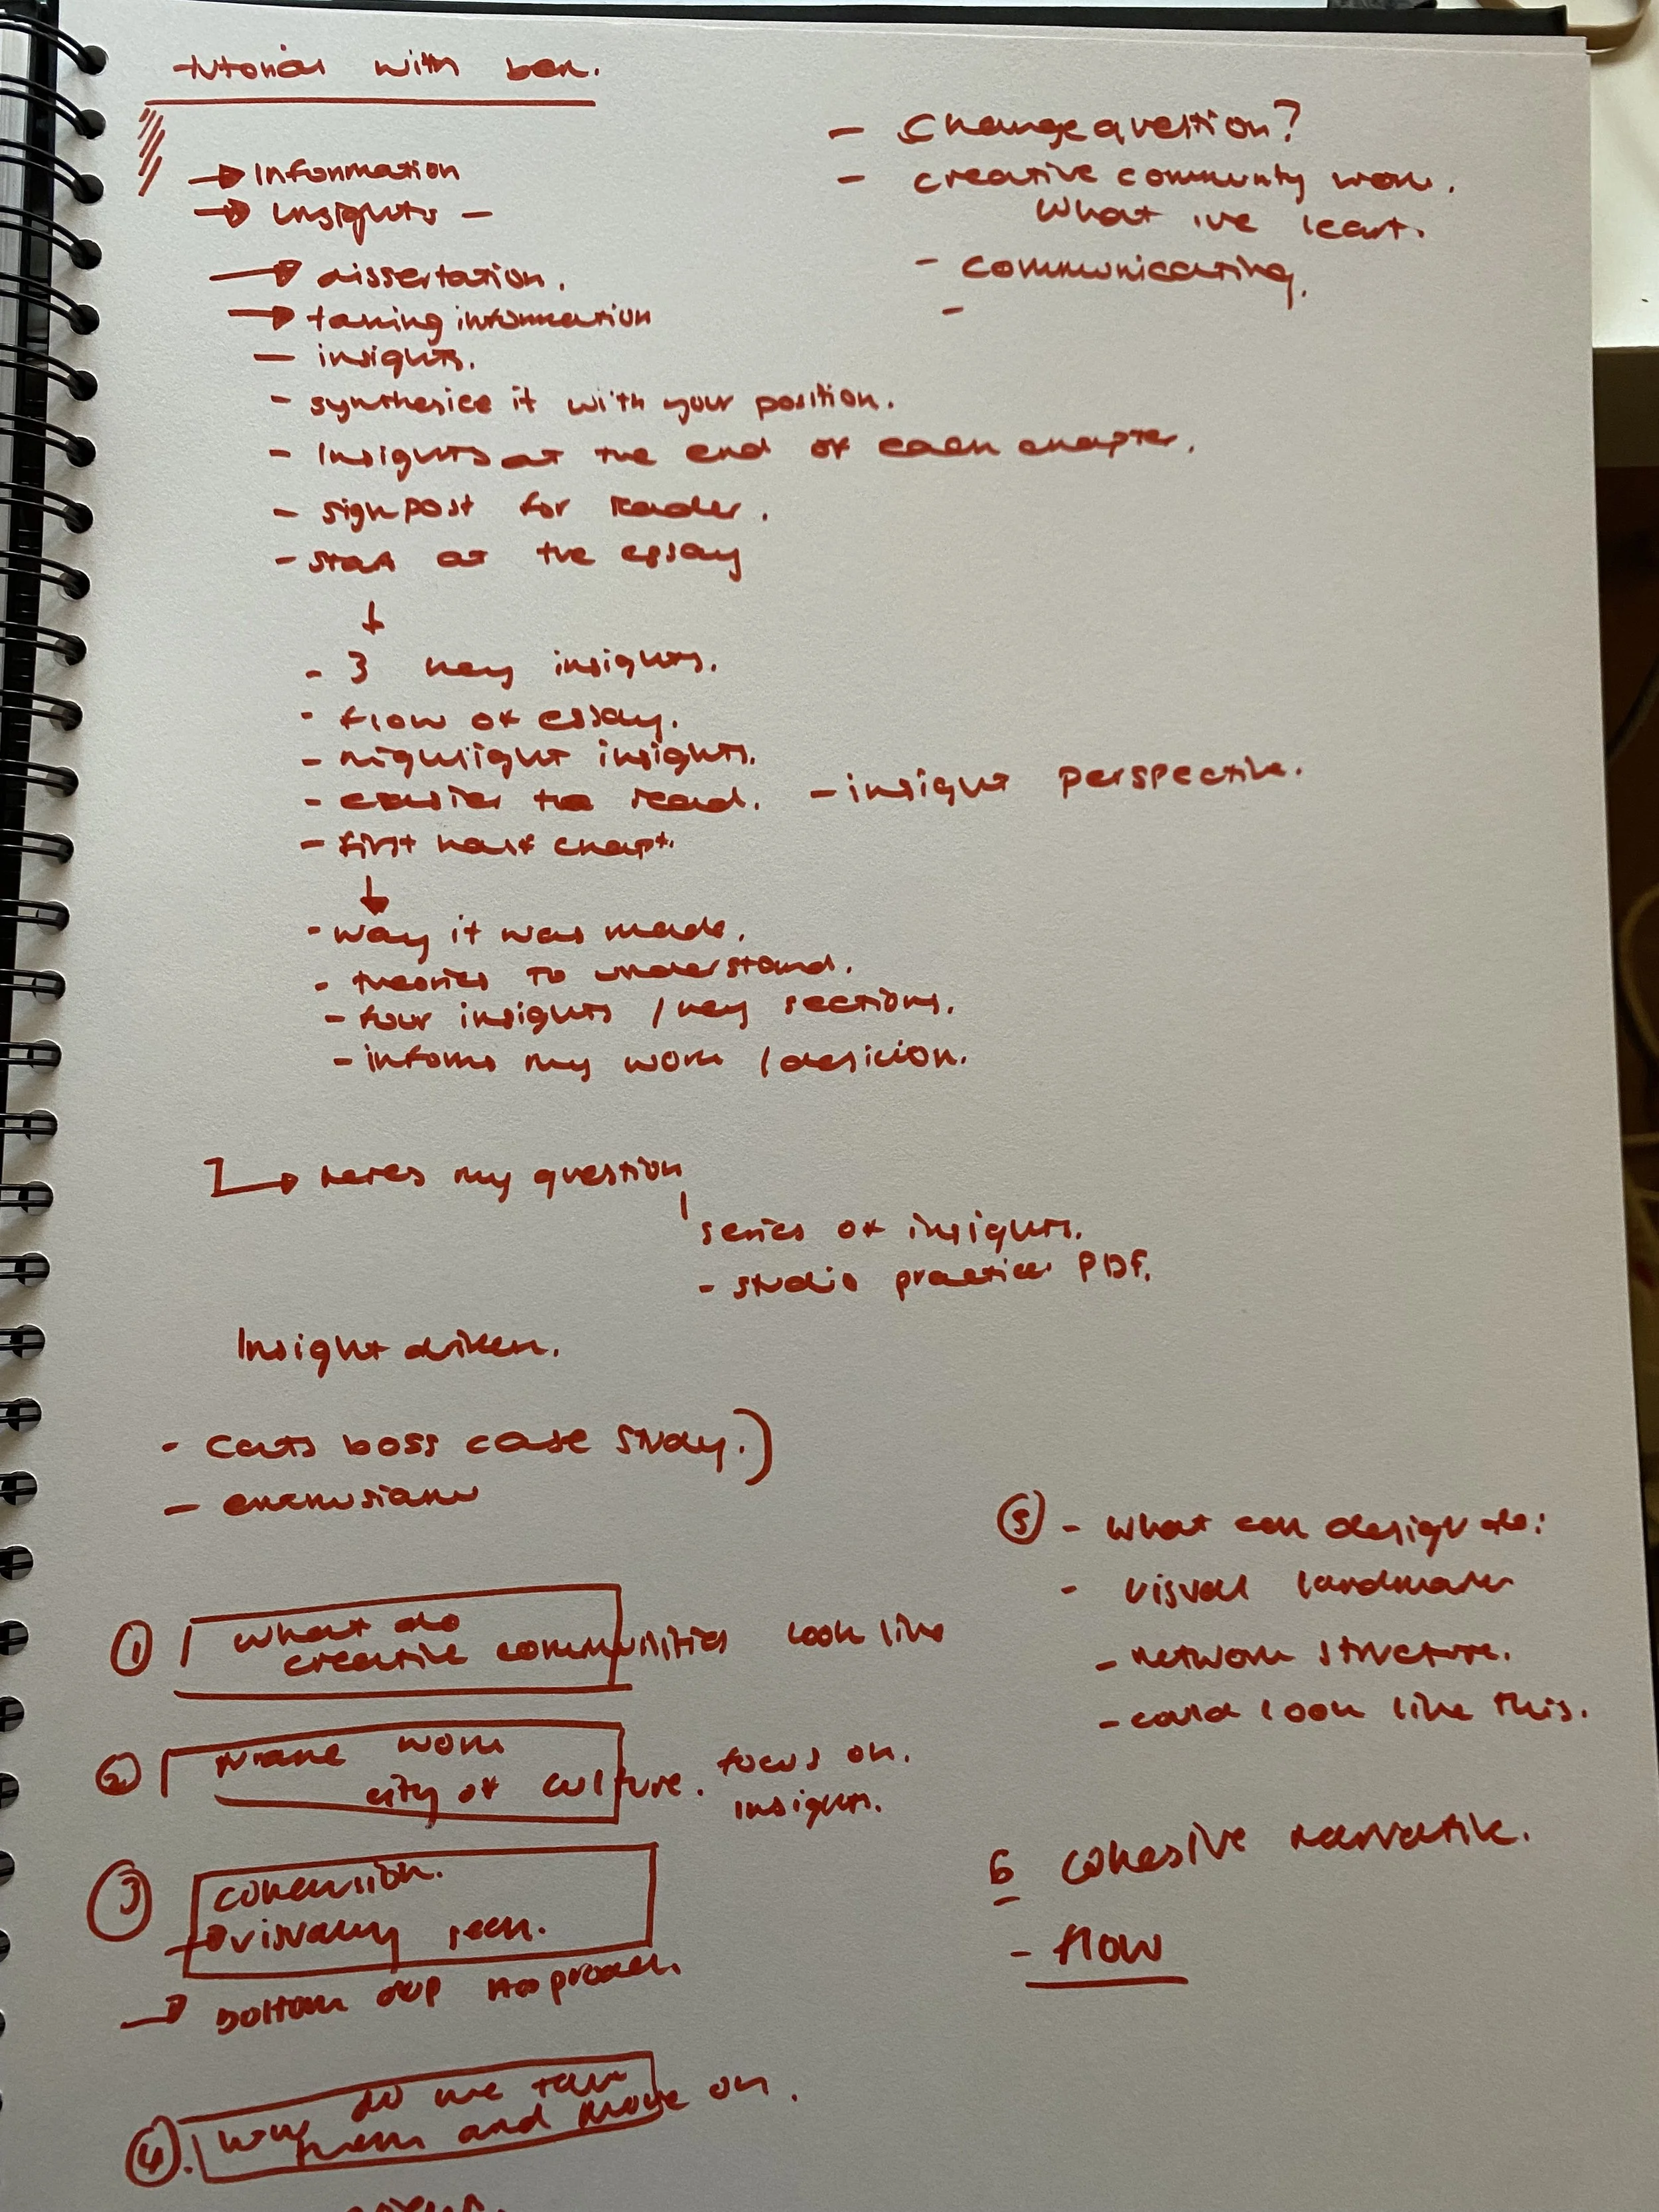 tutorial with ben.
→ Information
→ Insights –
→ dissertation.
→ taking information
– insights.
- synthesice it with your position.
- Insights at the end of each chapter.
- signpost for reader.
- start at the essay
↓
- 3 key insights.
- flow of essay.
- highlight insights.
- easier to read. – insight perspective.
- first half chapt.
↓
- way it was made.
- theories to understand.
- four insights / key sections.
- informs my work / desicion.
→ heres my question
series of insights.
- studio practice PDF.
Insight driven.
- cats boss case study.)
–
① what do
creative communities look like
② work
city of culture. focus on.
insights.
③
→ visually seen.
→ bottom approach
④. why do we
them and move on.
– change question?
– creative community work.
What ive learnt.
- communicating.
-
⑤ - what can design do:
- visual landmark
- network structure.
- could look like this.
6 cohesive narrative.
- flow